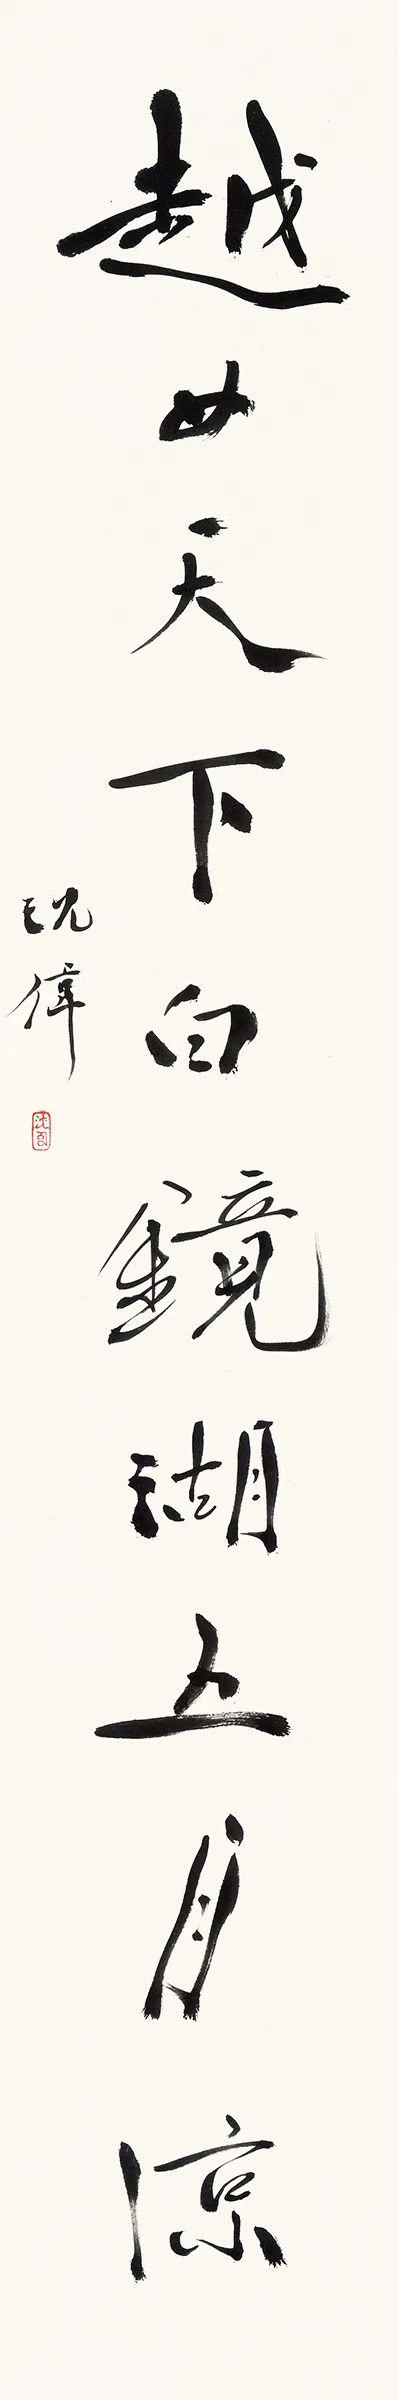 越女天下白鏡湖五月涼
沈偉